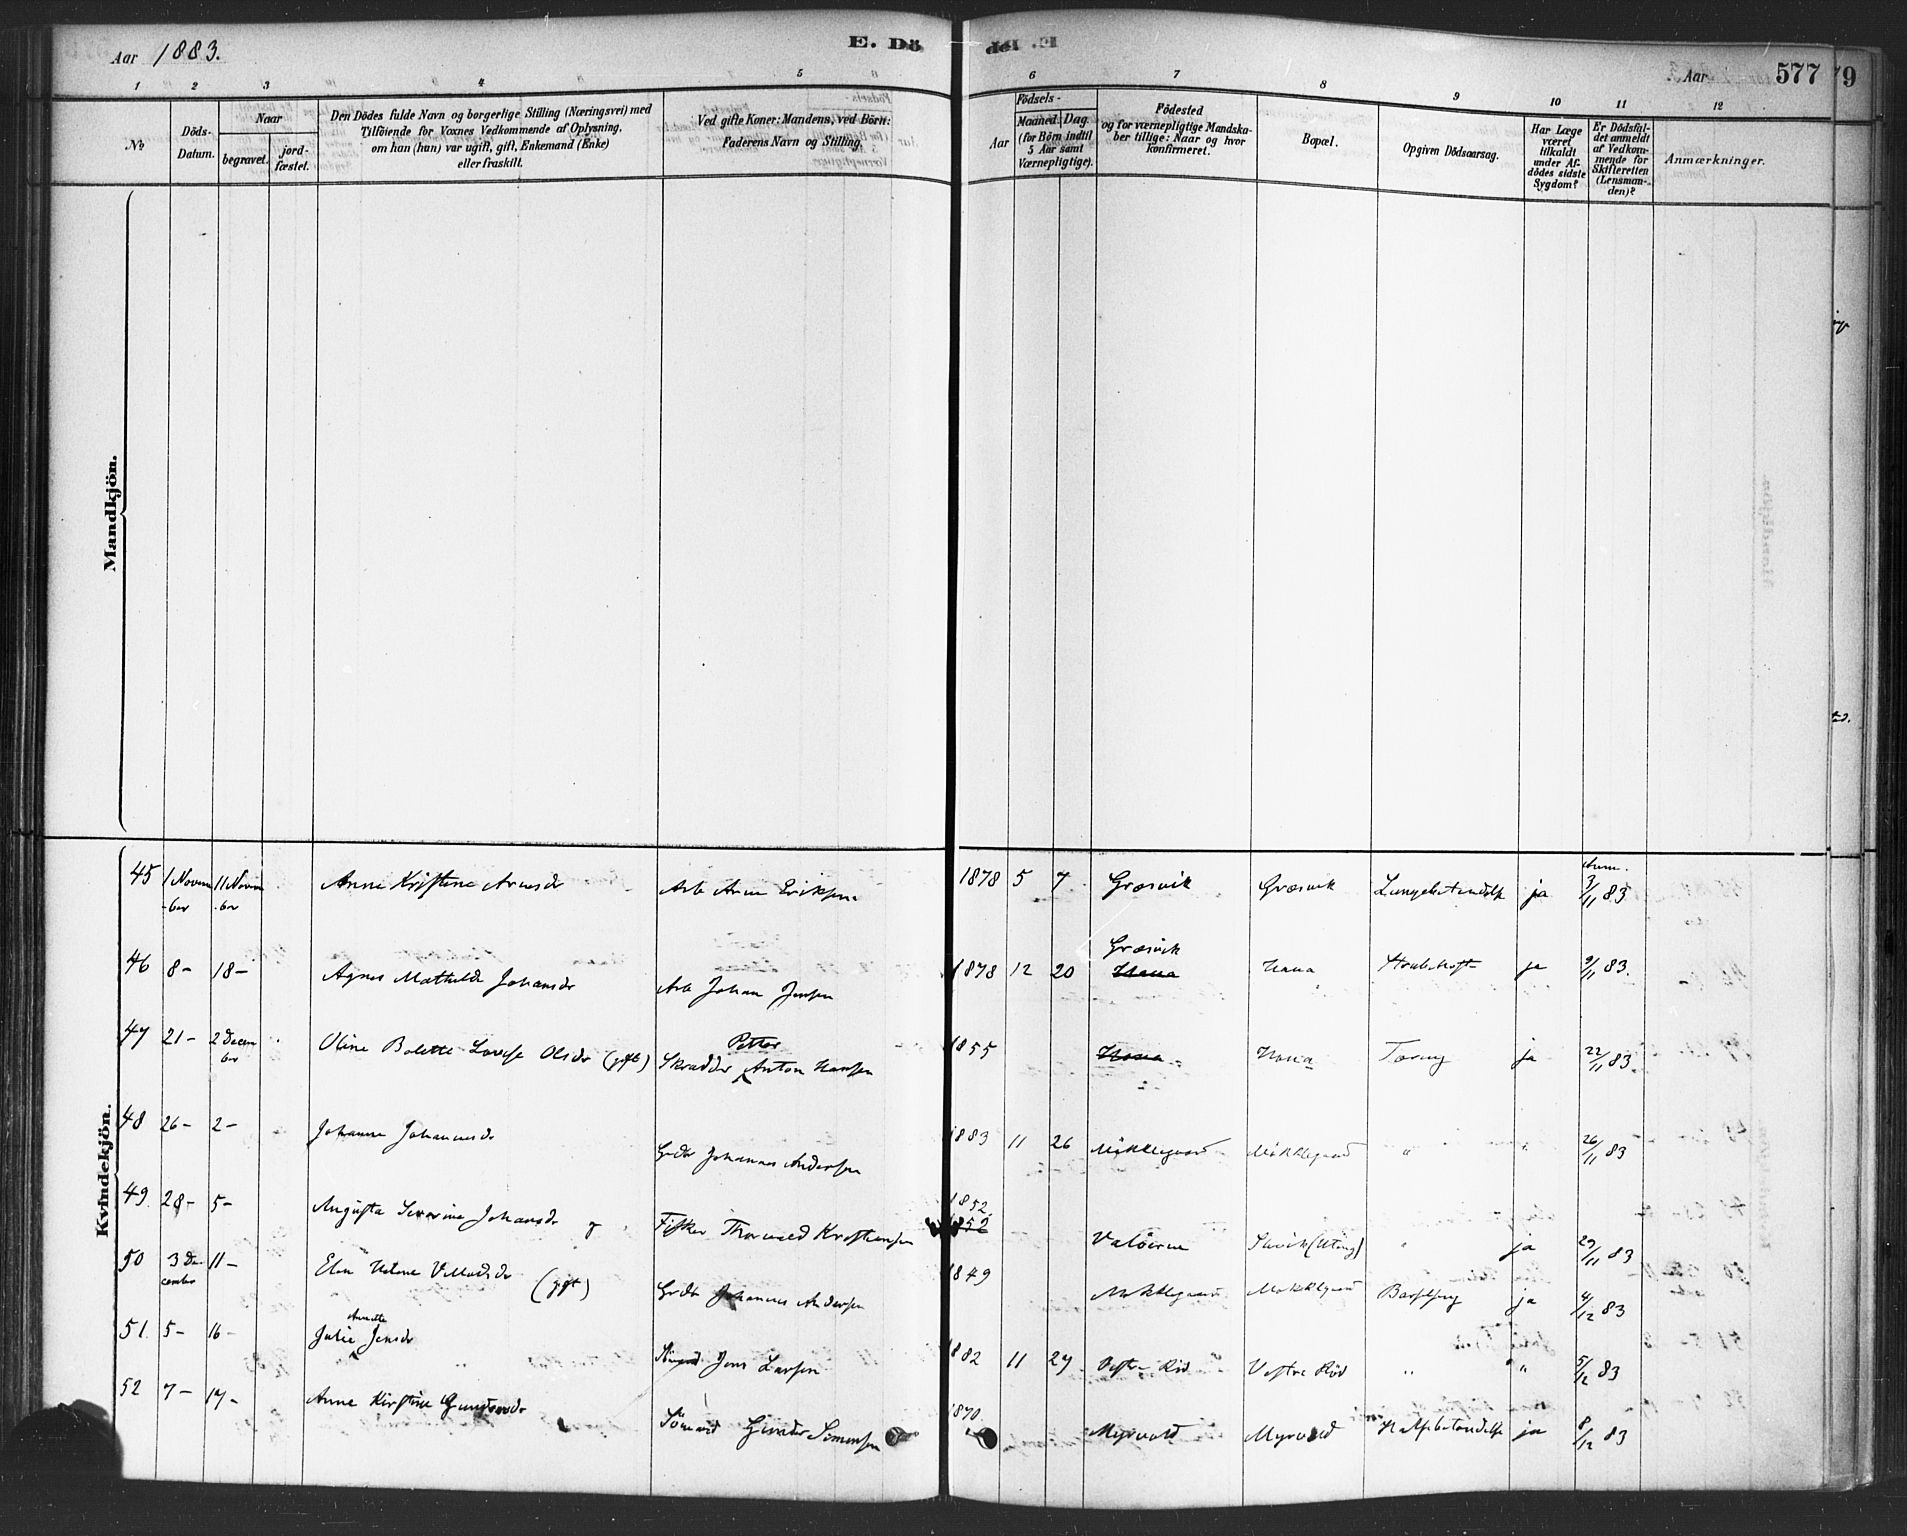 Aar 1883. E. Dö
de. E. Aar 577 79
1 2 3 4 5 6 7 8 9 10 11 12
No
Döds-Datum.
Naar
begravet.
jord-fæstet.
Den Dödes fulde Navn og borgerlige Stilling (Næringsvei) med
Tilföiende for Voxnes Vedkommende af Oplysning,
om han (hun) var ugift, gift, Enkemand (Enke)
eller fraskilt.
Ved gifte Koner: Mandens, ved Börn:
Faderens Navn og Stilling.
Födsels-
Aar
Maaned. Dag.
(for Börn indtil
5 Aar samt
Værnepligtige).
Födested
og for værnepligtige Mandska-
ber tillige: Naar og hvor
konfirmeret.
Bopæl.
Opgiven Dödsaarsag.
Har Læge
været
tilkaldt
under Af-
dödes sidste
Sygdom?
Er Dödsfal-
det anmeldt
af Vedkom-
mende for
Skifteretten
(Lensman-
den)?
Anmærkninger.
Mandkjön.
Kvindekjön.
45 1 Novem-ber 11 Novem-ber Anne Kristine Arnesdr Arb Arne Eriksen 1878 5 7 Græsvik Græsvik Lungebetændelse ja Anm. 3/11 83
46 8- 18- Agnes Mathilde Johansdr Arb Johan Jensen 1878 12 20 Græsvik Hana Hana ja 9/11 83.
47 21- 2 Decem-ber Oline Bolette Lovise Olsdr (gift) Skrædder Petter Anton Hansen 1855 Hana Hana Tæring ja 22/11 83
48 26- 2- Johanne Johannesdr Grdbr Johannes Andersen 1883 11 26 Mökklegaard Mökklegaard " " 26/11 83
49. 28- 5- Augusta Severine Johansdr g Fisker Thorvald Kristiansen 1852 1852 Valöerne (Uteng) " ja 29/11 83
50 3 De-cember 11- Elen Helene Villadsdr (gift) Grdbr Johannes Andersen 1849 Mökklegaard Mökklegaard Barselseng ja 4/12 83
51. 5- 16- Julie Annette Jensdr Sömand Jens Larsen 1882 11 27 Vestre Röd Vestre Röd " " 5/12 83
52 7- 17- Anne Kirstine Gundersdr Sömand Gunder Simensen 1870 Myrvold Myrvold Halsbetændelse ja 8/12 83